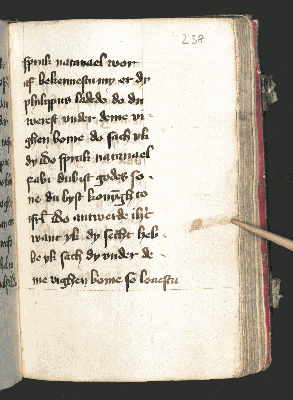 238
sprak natanael wor
af bekennestu my er dy
philippus ladede do du
werest vnder deme vi-
ghen bome do sach yk
dy Do sprak natanael
rabi du bist godes so-
ne du byst konnigh to
isrl Do antwerde ihc
wante yk dy secht heb-
be yk sach dy vnder de-
me vighen bome so louestu